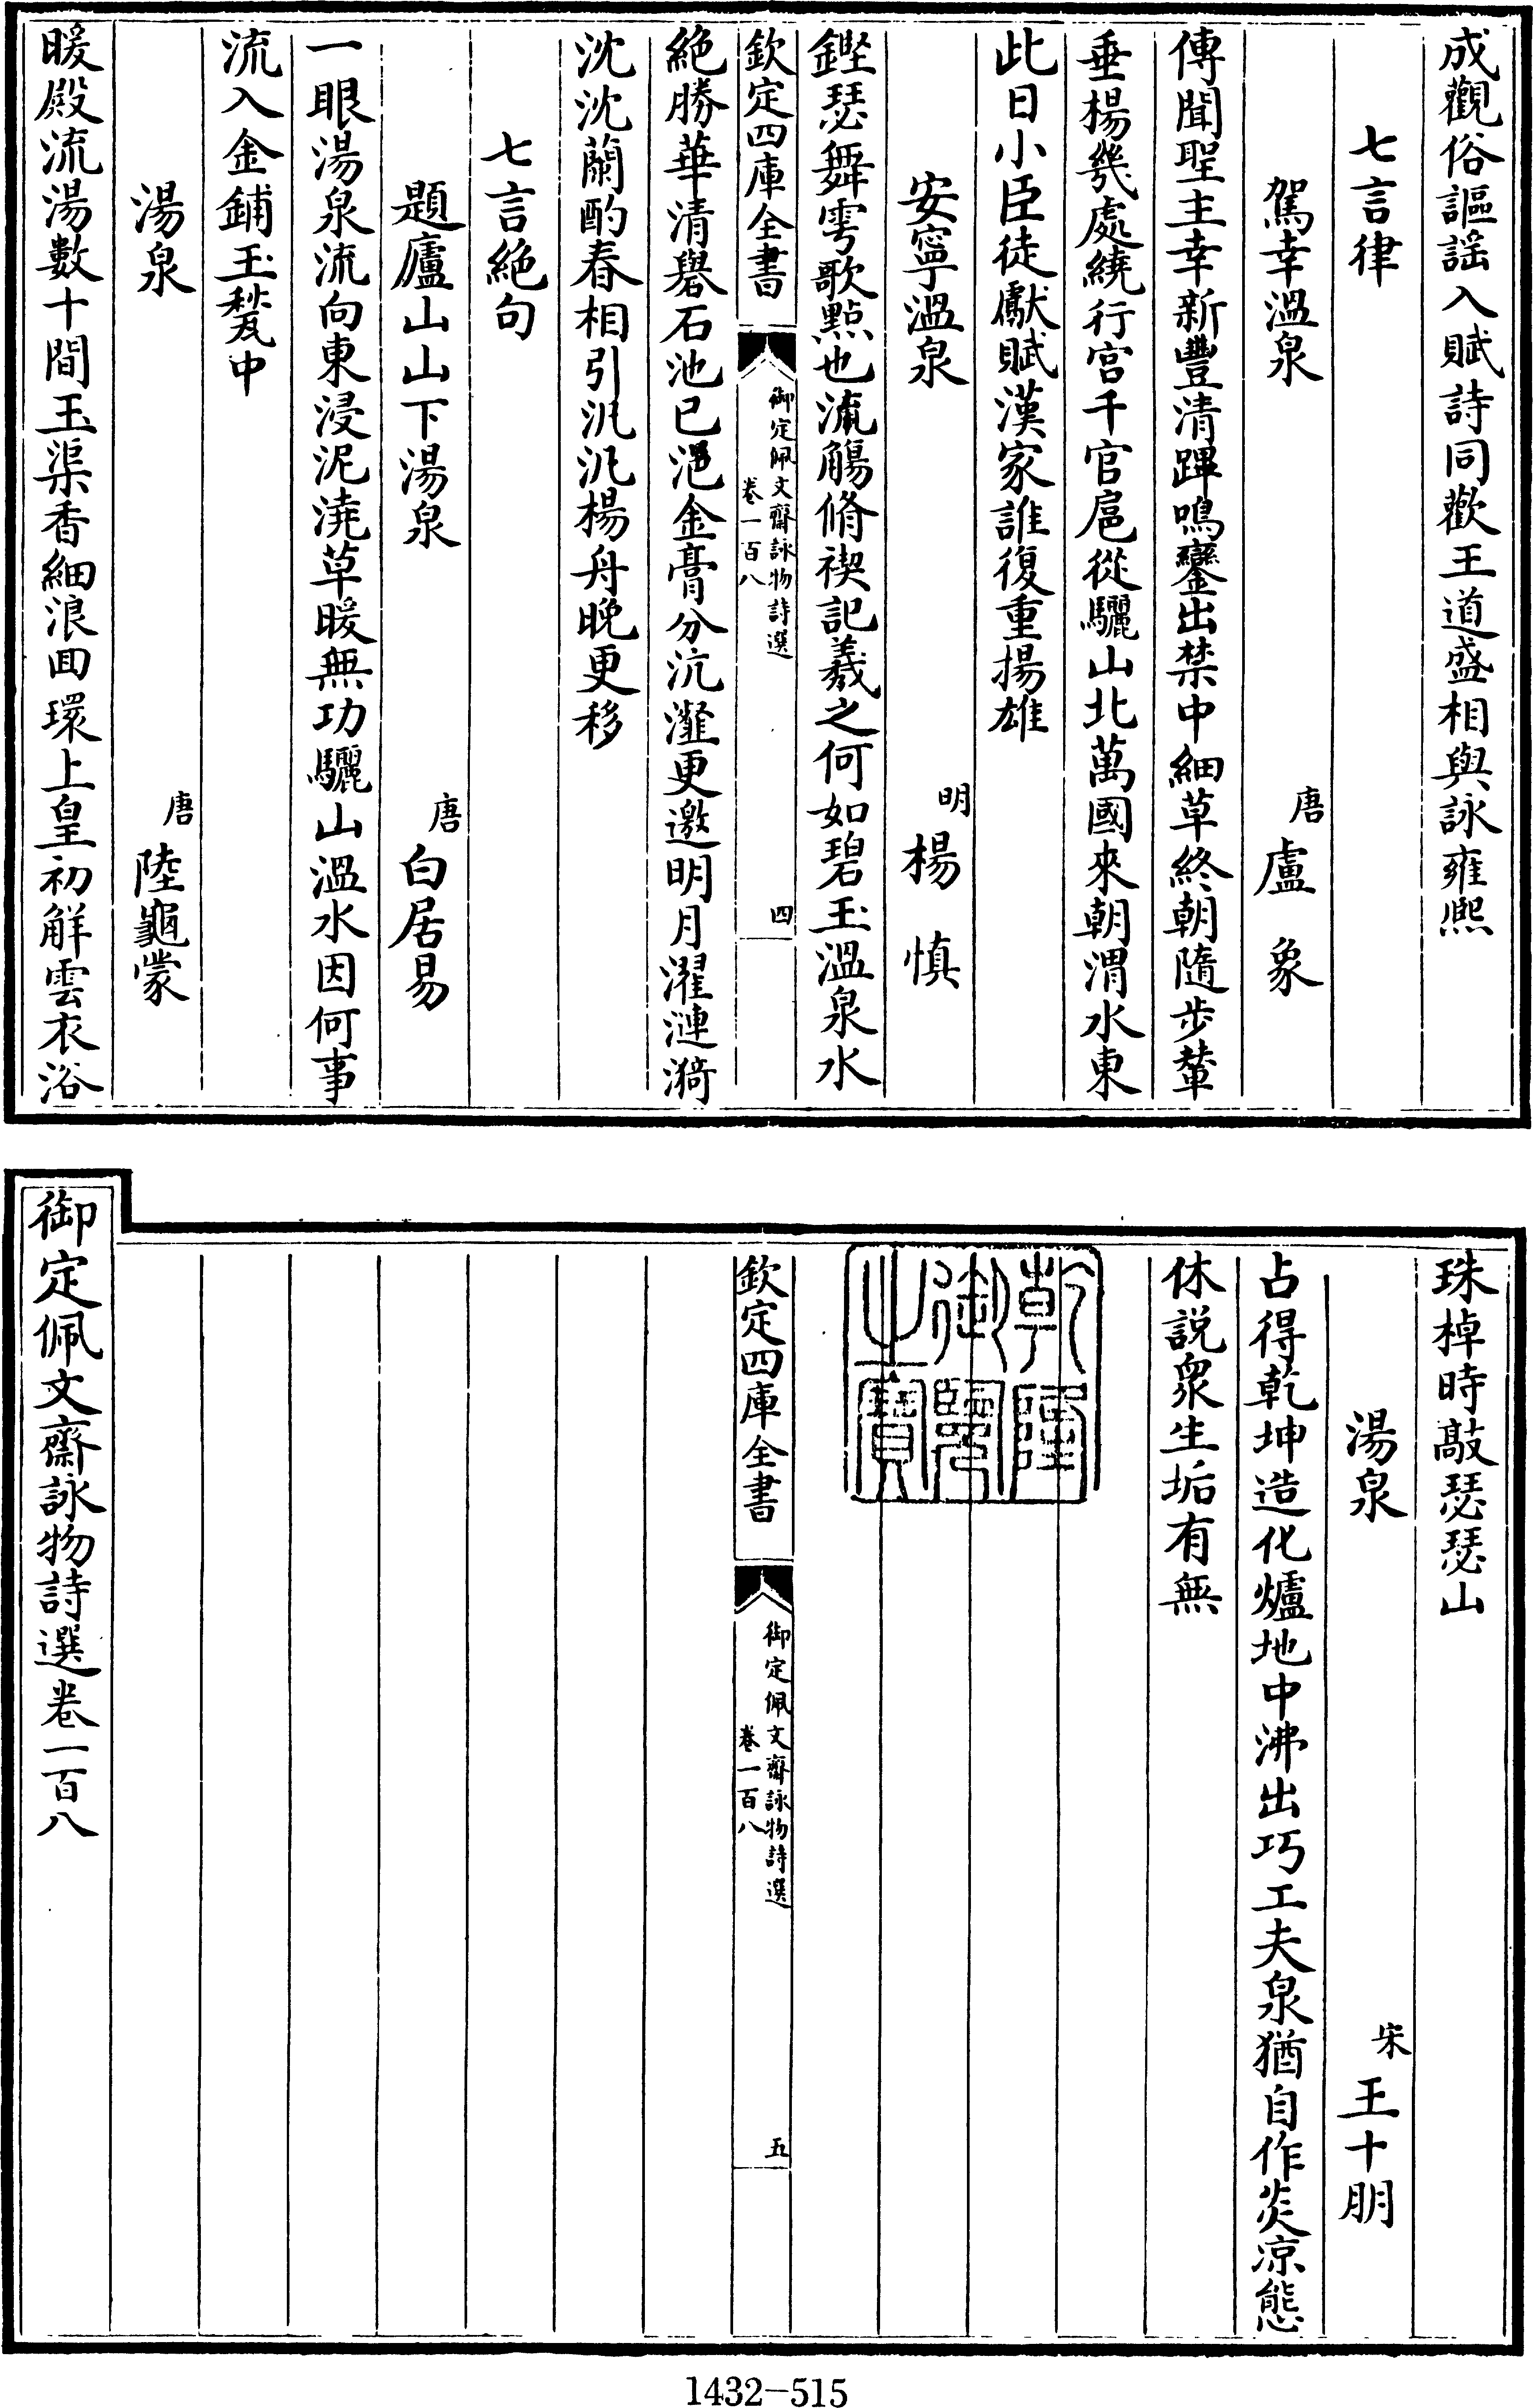 成觀俗謳謡入賦詩同歡王道盛相與詠雍熙
七言律
駕幸溫泉
唐
盧象
傳聞聖主幸新豐清蹕鳴鑾出禁中細草終朝隨步輦
垂楊幾處繞行宮千官扈從驪山北萬國來朝渭水東
此日小臣徒獻賦漢家誰復重揚雄
安寧溫泉
明
楊慎
鏗瑟舞雩歌點也流觴脩禊記羲之何如碧玉溫泉水
欽定四庫全書
御定佩文齋詠物詩選
卷一百八
四
絶勝華清礜石池已浥金膏分沆瀣更邀明月濯漣漪
沈沈蘭酌春相引汎汎楊舟晚更移
七言絶句
題廬山山下湯泉
唐
白居易
一眼湯泉流向東浸泥澆草暖無功驪山溫水因何事
流入金鋪玉甃中
湯泉
唐
陸龜蒙
暖殿流湯數十間玉渠香細浪回環上皇初解雲衣浴
珠棹時敲瑟瑟山
湯泉
宋
王十朋
占得乾坤造化爐地中沸出巧工夫泉猶自作炎涼態
休説衆生垢有無
乾隆御覽之寶
欽定四庫全書
御定佩文齋詠物詩選
卷一百八
五
御定佩文齋詠物詩選卷一百八
1432-515